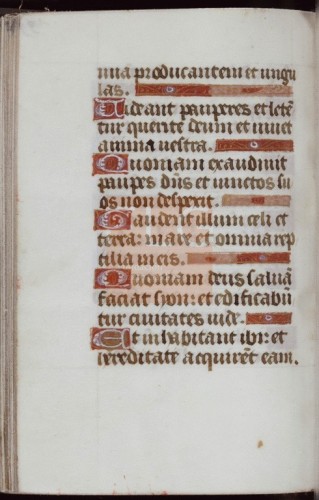 nua producantem et ungu
las.
Uideant pauperes et lete͂
tur querite deum et uiuet
anima uestra.
Quoniam exaudiuit
paupes dn͂s et uinctos su
os non despexit.
Laudent illum celi et
terra: mare et omnia rep
tilia in eis.
Quoniam deus saluã
faciat syon: et edificabũ
tur ciuitates iude.
Et inhabitant ibi: et
hereditate acquirẽt eam.